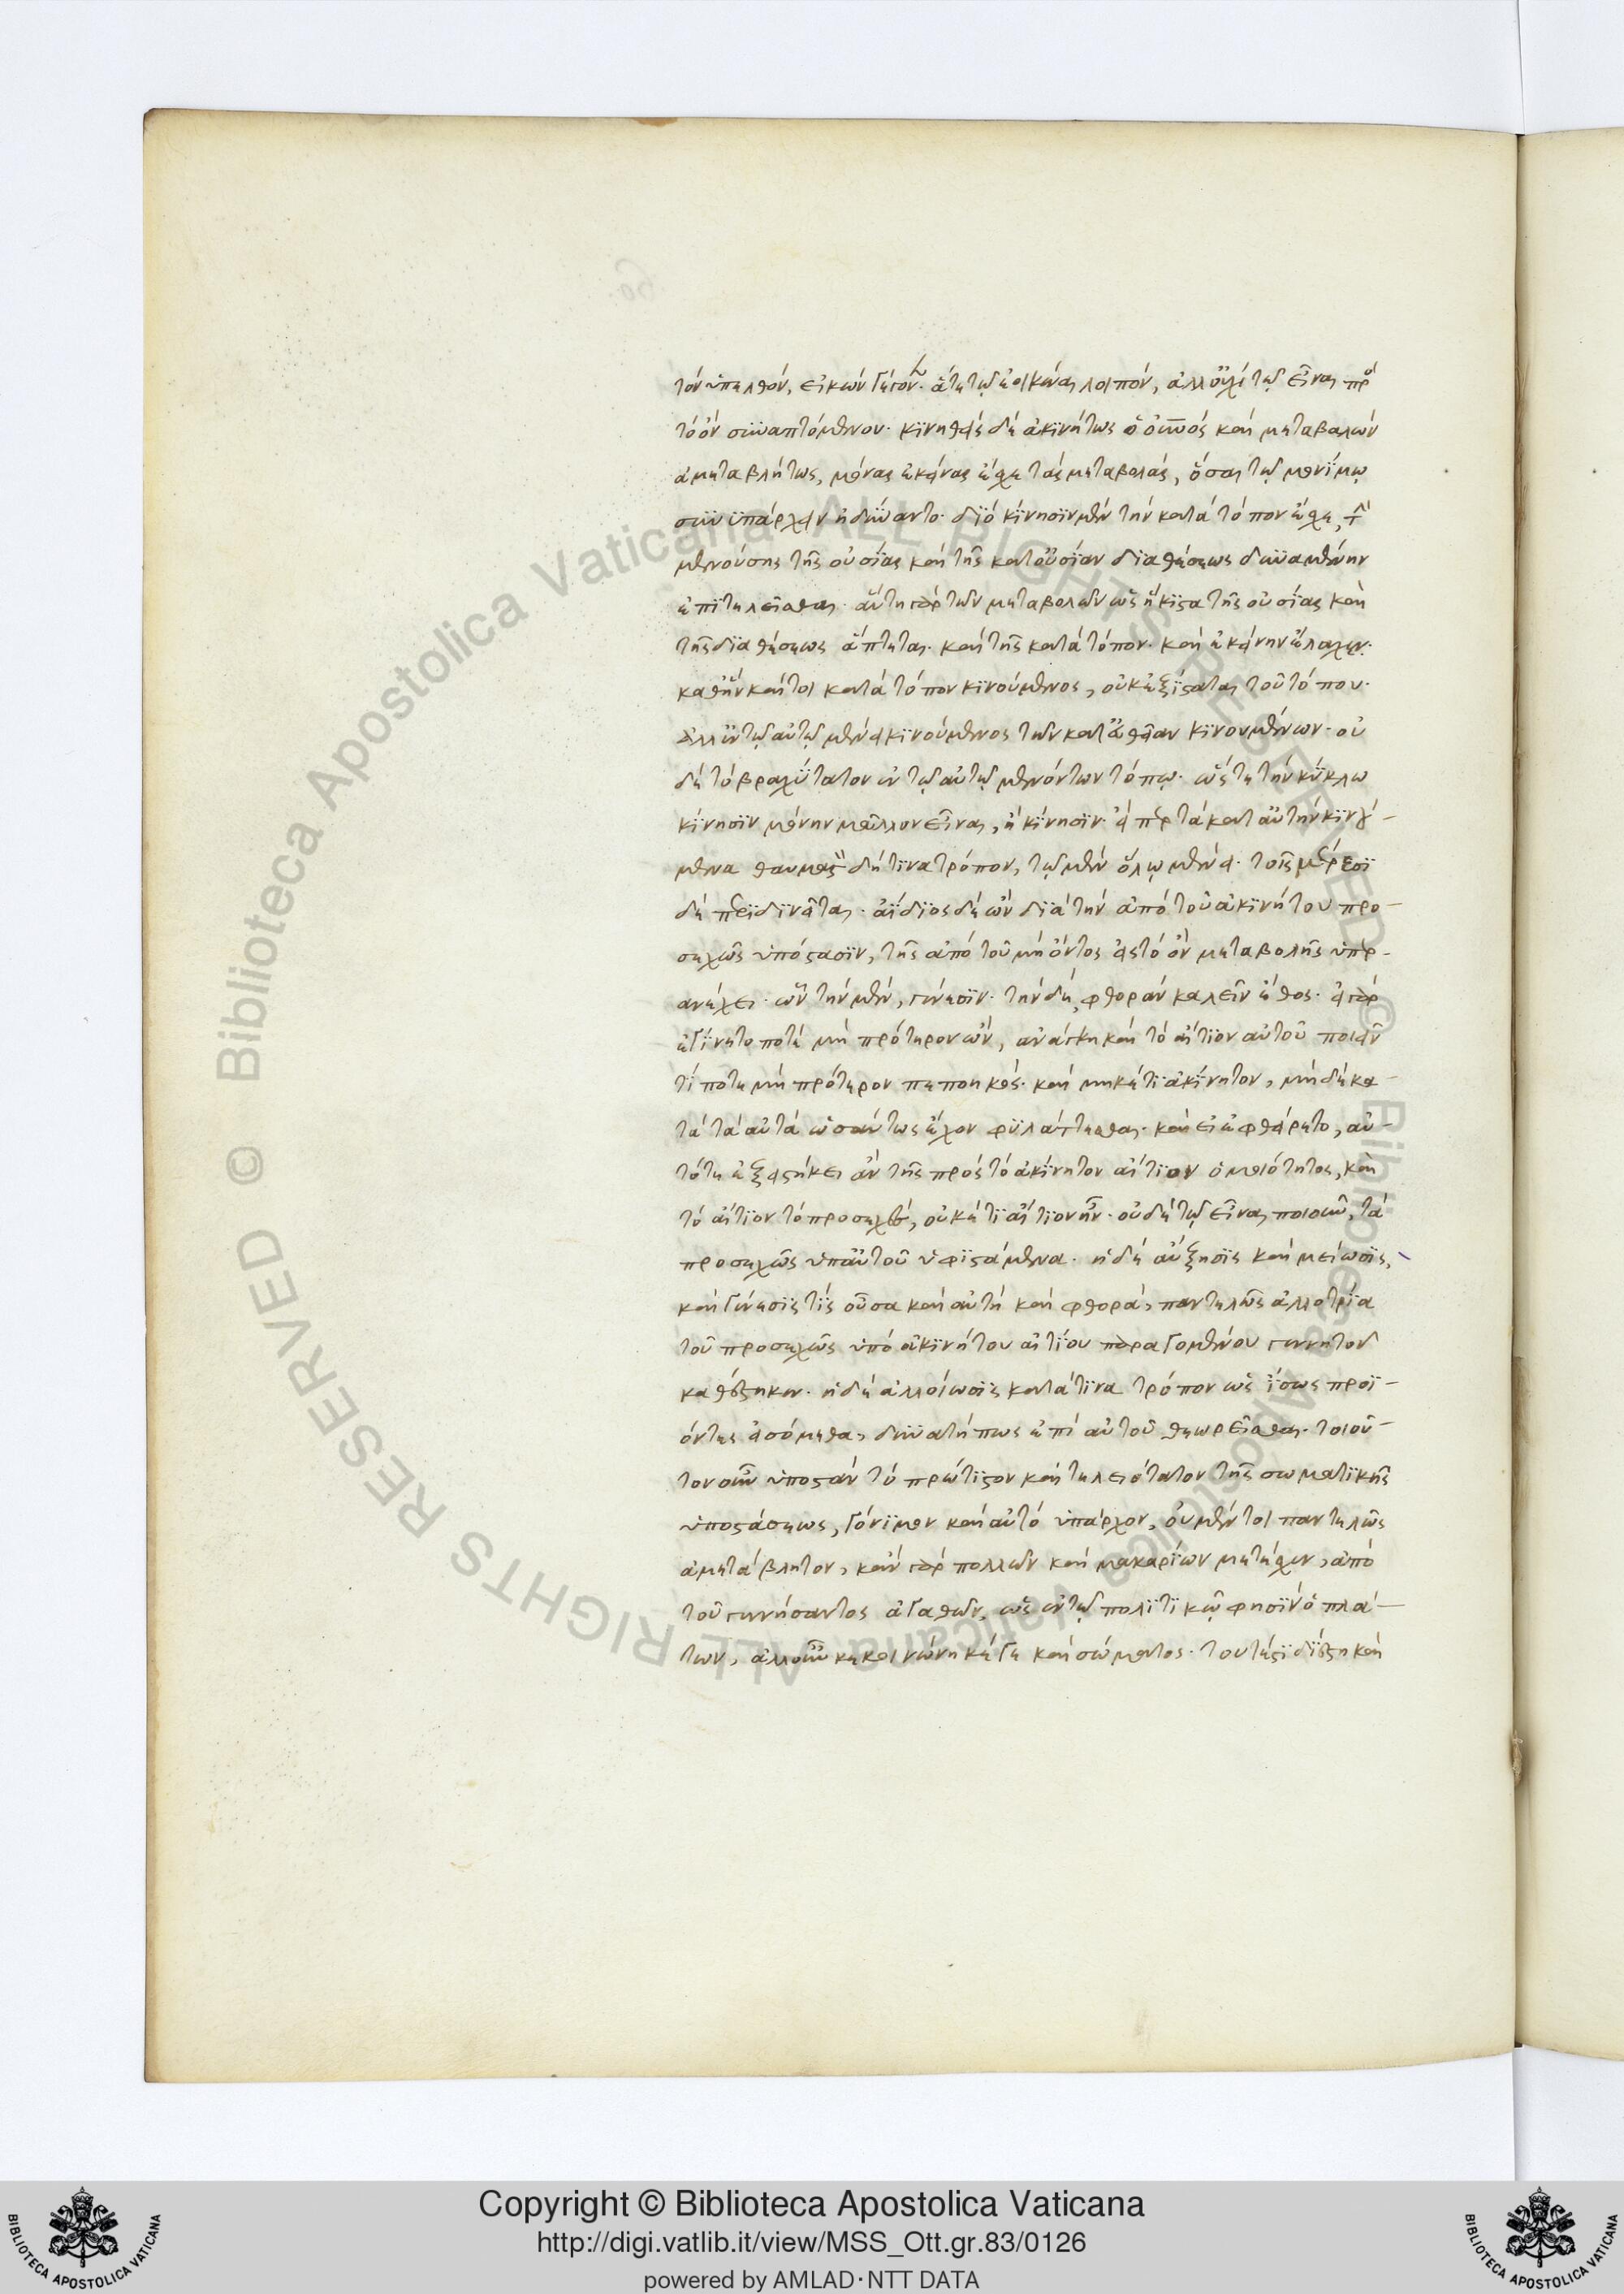 τὸν ὑπελθόν, εἰκὼν γέγονεν. ἅτε τῷ ἐοικέναι λοιπόν, ἀλλ' οὐχὶ τῷ εἶναι πρὸς
τὸ ὂν συναπτόμενον. κινηθεὶς δὲ ἀκινήτως ὁ οὐρανὸς καὶ μεταβαλὼν
ἀμεταβλήτως, μόνας ἐκείνας εἶχε τὰς μεταβολὰς, ὅσαι τῷ μονίμῳ
συνυπάρχειν ἠδύναντο. διὸ κίνησιν μὲν τὴν κατὰ τόπον εἶχε, τῆς
μενούσης τῆς οὐσίας καὶ τῆς κατ' οὐσίαν διαθέσεως δυναμένην
ἐπιτελεῖσθαι. αὕτη γὰρ τῶν μεταβολῶν ὡς ἥκιστα τῆς οὐσίας καὶ
τῆς διαθέσεως ἅπτεται. καὶ τῆς κατὰ τόπον. καὶ ἐκείνην ἔλαχεν.
καθ' ἣν καίτοι κατὰ τόπον κινούμενος, οὐκ ἐξίσταται τοῦ τόπου.
ἀλλ' ἐν τῷ αὐτῷ μένει κινούμενος τῶν κατ' εὐθεῖαν κινουμένων. οὐ
δὲ τὸ βραχύτατον ἐν τῷ αὐτῷ μενόντων τόπῳ. ὥστε τὴν κύκλω
κίνησιν μόνην μᾶλλον εἶναι, ἢ κίνησιν. εἴπερ τὰ κατ' αὐτὴν κινού-
μενα θαυμαστὸν δή τινα τρόπον, τῷ μὲν ὅλῳ μένει. τοῖς μέρεσι
δὲ περιδινεῖται. ἀΐδιος δὲ ὢν διὰ τὴν ἀπὸ τοῦ ἀκινήτου προ-
σεχῶς ὑπόστασιν, τῆς ἀπὸ τοῦ μὴ ὄντος εἰς τὸ ὂν μεταβολῆς ὑπερ-
ανέχει. ὧν τὴν μὲν, γένεσιν. τὴν δὲ, φθορὰν καλεῖν ἔθος. εἰ γὰρ
ἐγίνετο ποτὲ μὴ πρότερον ὤν, ἀνάγκη καὶ τὸ αἴτιον αὐτοῦ ποιεῖν
τί ποτε μὴ πρότερον πεποιηκός. καὶ μηκέτι ἀκίνητον, μὴ δὲ κα-
τὰ τὰ αὐτὰ ὡσαύτως ἔχον φυλάττεσθαι. καὶ εἰ ἐφθείρετο, αὐ-
τότε ἐξειστήκει ἂν τῆς πρὸς τὸ ἀκίνητον αἴτιον ὁμοιότητος, καὶ
τὸ αἴτιον τὸ προσεχὲς, οὐκέτι αἴτιον ἦν. οὐδὲ τῷ εἶναι ποιοῦν, τὰ
προσεχῶς ὑπ' αὐτοῦ ὑφιστάμενα. ἡ δὲ αὔξησις καὶ μείωσις,
καὶ γένεσις τίς οὖσα καὶ αὐτὴ καὶ φθορά, παντελῶς ἀλλοτρία
τοῦ προσεχῶς ὑπὸ ἀκινήτου αἰτίου παραγομένου γεννητοῦ
καθέστηκεν. ἡ δὲ ἀλλοίωσις κατά τινα τρόπον ὡς ἴσως προϊ-
όντες εἰσόμεθα, δυνατή πως ἐπὶ αὐτοῦ θεωρεῖσθαι. τοιοῦ-
τον οὖν ὑποστὰν τὸ πρώτιστον καὶ τελειότατον τῆς σωματικῆς
ὑποστάσεως, γόνιμον καὶ αὐτὸ ὑπάρχον, οὐ μέντοι παντελῶς
ἀμετάβλητον, κἂν γὰρ πολλῶν καὶ μακαρίων μετέσχεν, ἀπὸ
τοῦ γεννήσαντος ἀγαθῶν, ὡς ἐν τῷ πολιτικῷ φησὶν ὁ πλά-
των, ἀλλ' οὖν κεκοινώνηκέ γε καὶ σώματος. τουτέστι διέστη καὶ
Copyright © Biblioteca Apostolica Vaticana
http://digi.vatlib.it/view/MSS_Ott.gr.83/0126
powered by AMLAD·NTT DATA